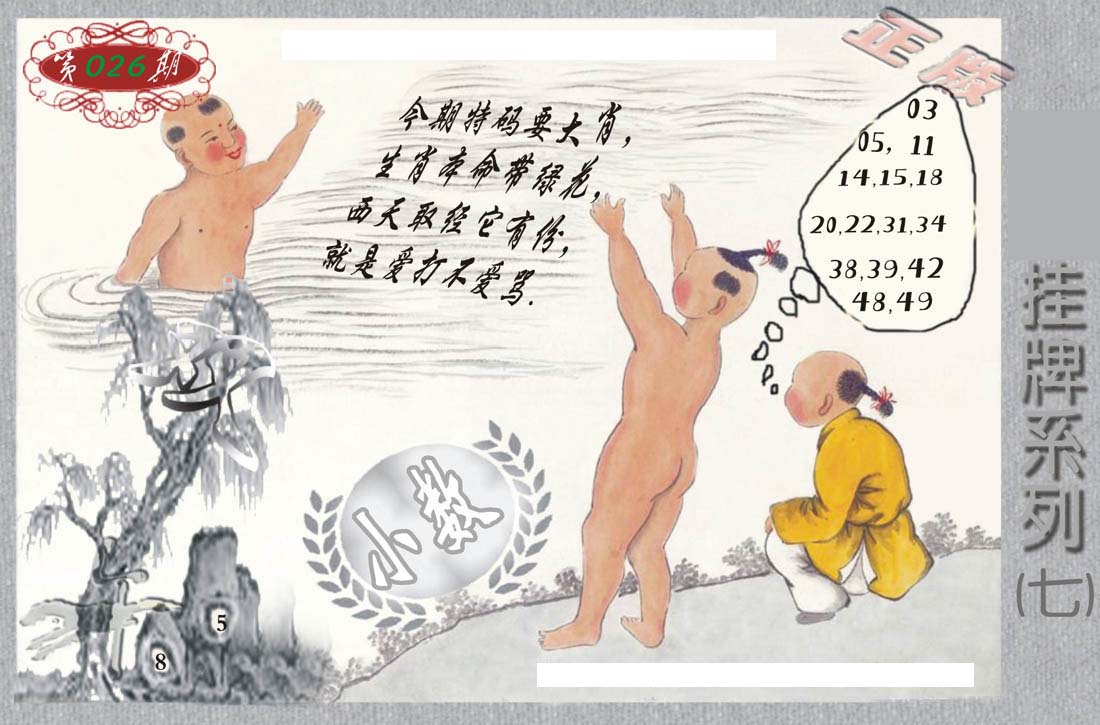 第026期
正版
今期特码要大肖,
生肖本命带绿花,
西天取经它有份,
就是爱打不爱骂.
03
05, 11
14,15,18
20,22,31,34
38,39,42
48,49
挂牌系列(七)
小数
5
8